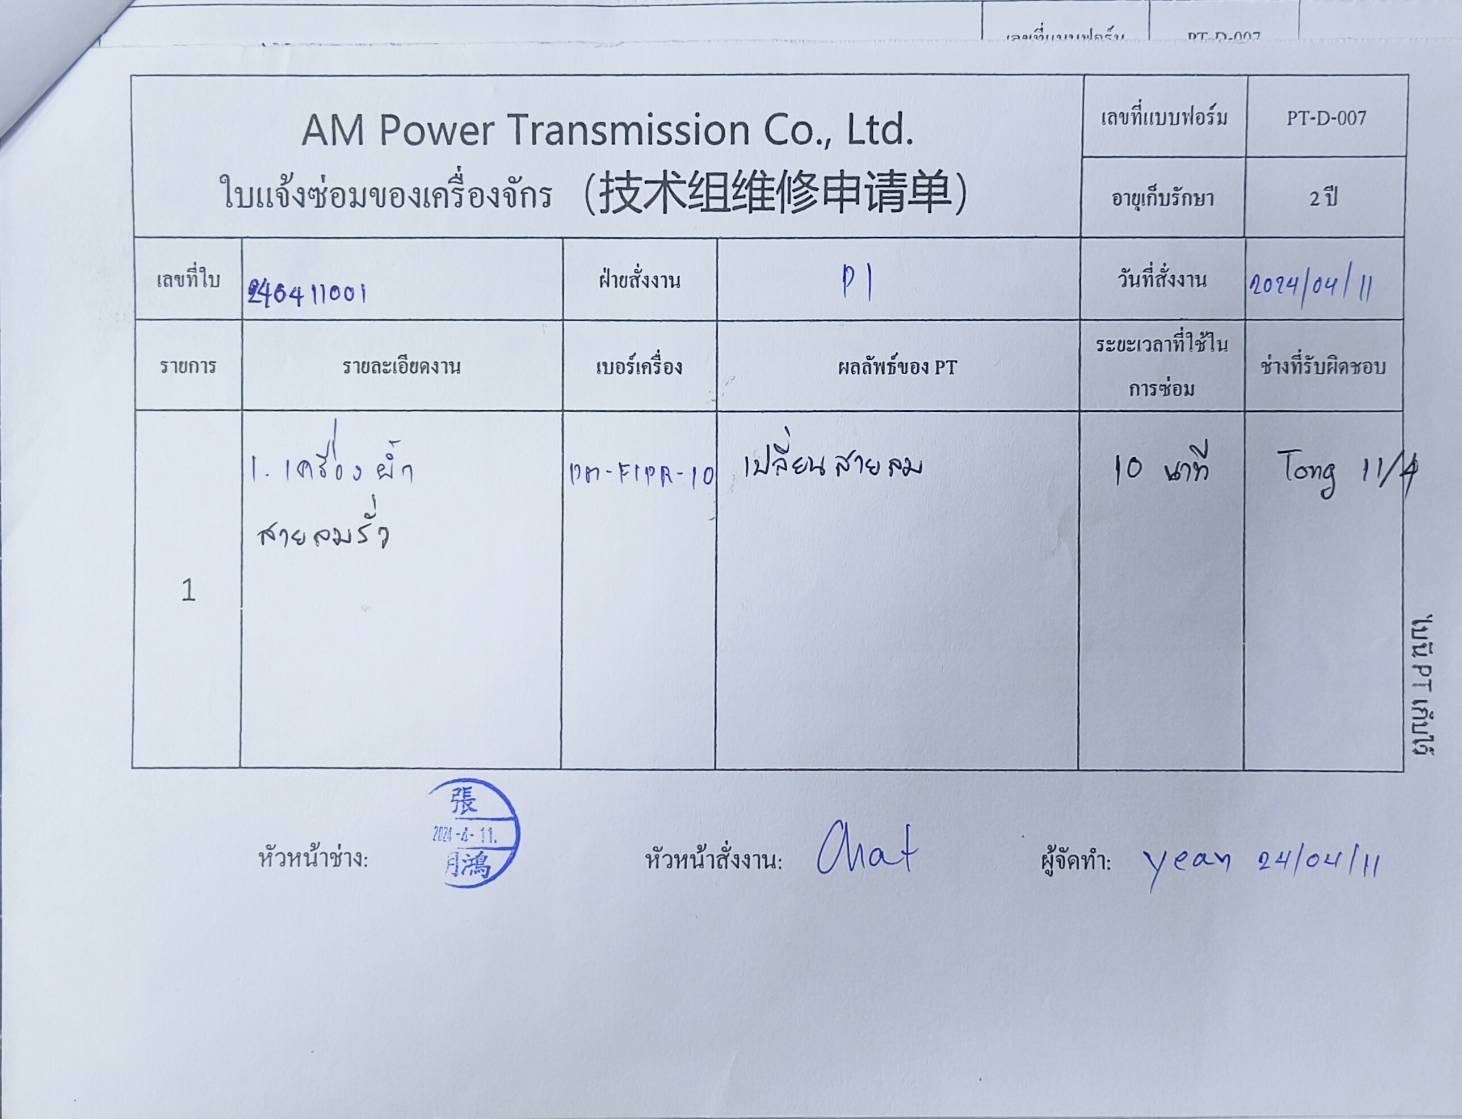 เลขที่แบบฟอร์ม PT-D-007
AM Power Transmission Co., Ltd.
ใบแจ้งซ่อมของเครื่องจักร (技术组维修申请单)
เลขที่แบบฟอร์ม PT-D-007
อายุเก็บรักษา 2 ปี
เลขที่ใบ 240411001 ฝ่ายสั่งงาน P1 วันที่สั่งงาน 2024/04/11
รายการ รายละเอียดงาน เบอร์เครื่อง ผลลัพธ์ของ PT ระยะเวลาที่ใช้ใน
การซ่อม ช่างที่รับผิดชอบ
1 1. เครื่อง เปลี่ยนสายลม 10 นาที Tong 11/4
สายลมรั่ว
ใบนี้ PT เก็บไว้
หัวหน้าช่าง: 張
2024-4-11.
月鴻
หัวหน้าสั่งงาน: Chat
ผู้จัดทำ: yean 24/04/11